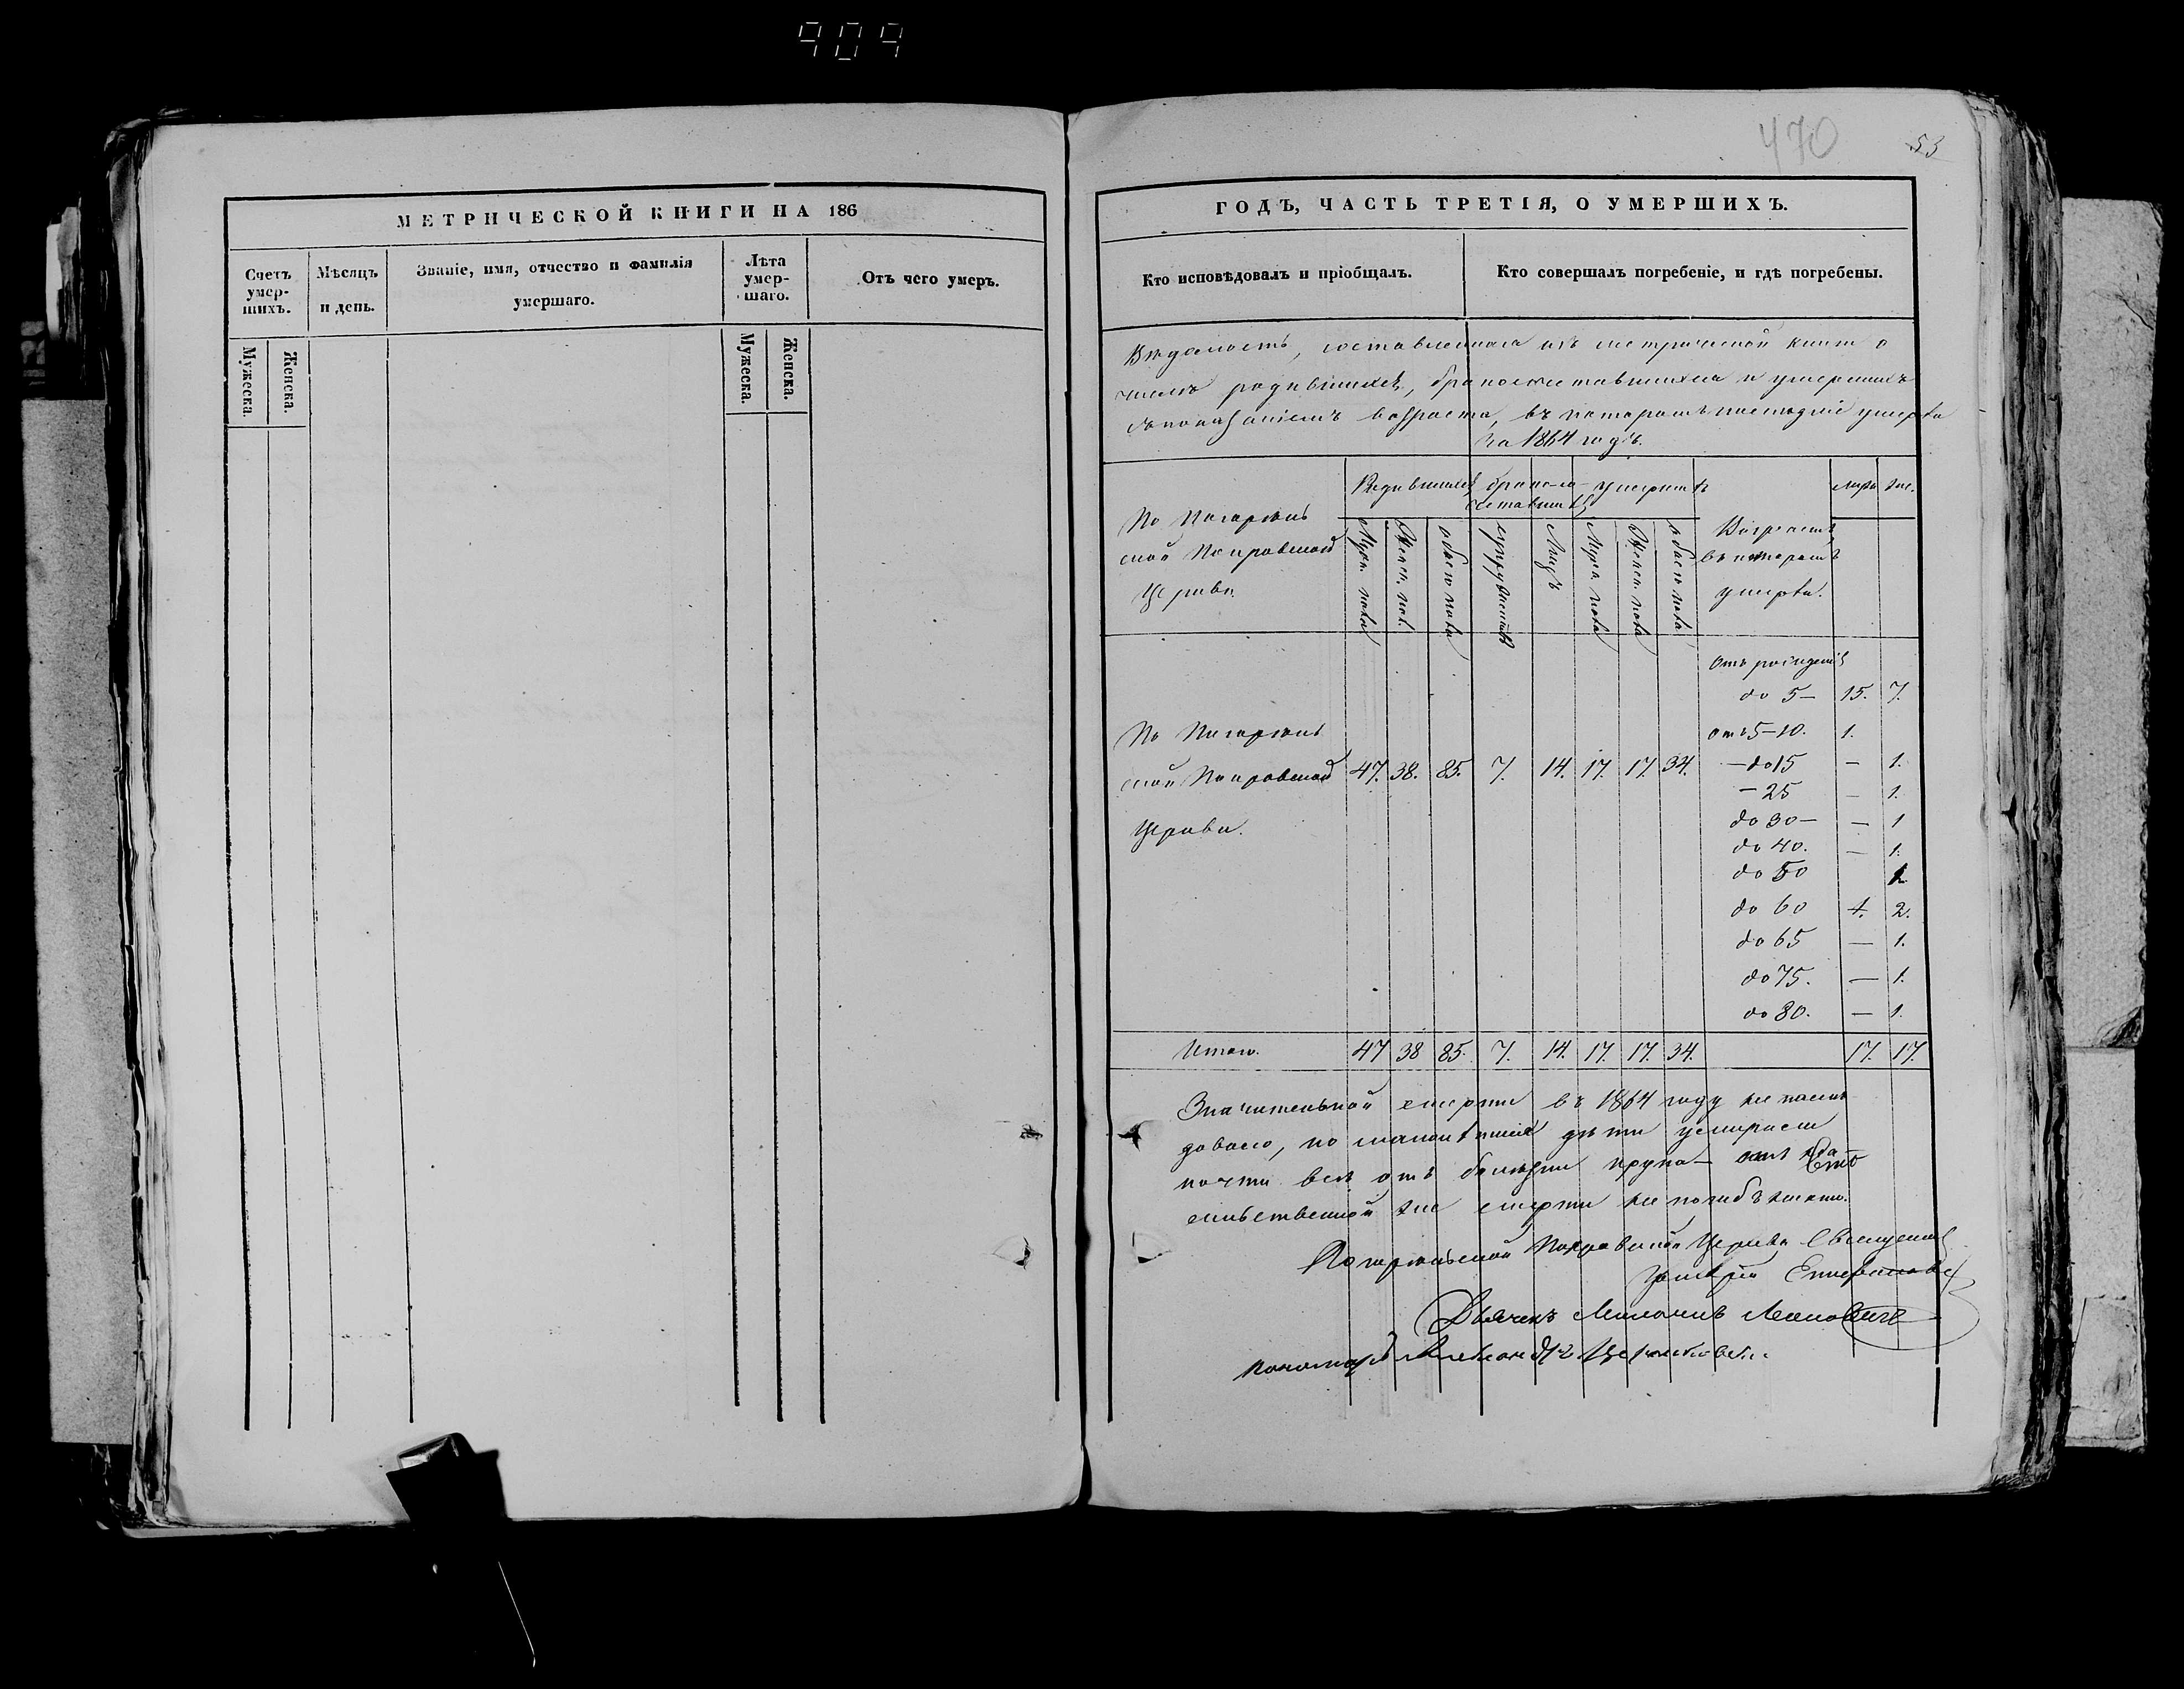 909
МЕТРИЧЕСКОЙ КНИГИ НА 186
Счетъ умер-шихъ.
Мѣсяцъ и день.
Званіе, имя, отчество и фамилія умершаго.
Лѣта умер-шаго.
Отъ чего умеръ.
Мужеска.
Женска.
Мужеска.
Женска.
470
53
ГОДЪ, ЧАСТЬ ТРЕТІЯ, О УМЕРШИХЪ.
Кто исповѣдовалъ и пріобщалъ.
Кто совершалъ погребеніе, и гдѣ погребены.
Вѣдомость, составленная изъ метрической книги о
числѣ родившихся, бракосочетавшихся и умершихъ
съ показаніемъ возраста, въ которомъ послѣдніе умерли
за 1864 годъ.
Родившихся
бракосо-
четавших
умершихъ
муж.
жен.
По
ской Покровской
Церкви
Муж. пола
Женск. пол.
обоего пола
супружествъ
Лицъ
Муж. пола
Женск. пола
обоего пола
Возрастъ
въ которомъ
умерли.
Отъ рожденія
до 5 — 15. 7.
отъ 5—10. 1.
— до 15 — 1.
— 25 — 1.
до 30 — — 1
до 40. — 1.
до 50
до 60 1. 2.
до 65 — 1.
до 75. — 1.
до 80. — 1.
По
ской Покровской 47. 38. 85. 7. 14. 17. 17. 34.
Церкви.
Итого. 47 38 85. 7. 14. 17. 17. 34. 17. 17.
Значительной смерти въ 1864 году не послѣ-
довало, но дѣти умирали
почти всѣ отъ болѣзни крупа —
смерти не погибъ никто.
Покровской Церкви Священникъ
Дьячекъ
пономарь